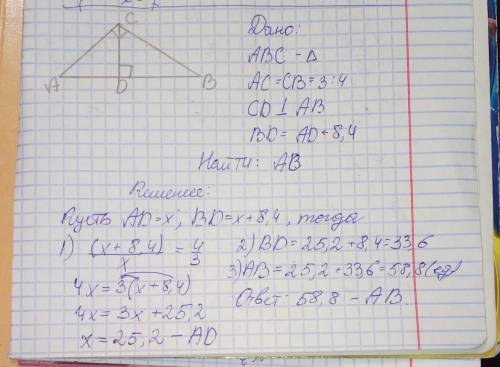 C
A
D
B
Дано:
ABC - Δ
AC=CB=3:4
CD ⊥ AB
BD= AD+8,4
Найти: AB
Решение:
Пусть AD=x, BD=x+8,4, тогда
1) (x+8,4)/x = 4/3
4x=3(x+8,4)
4x=3x+25,2
x=25,2-AD
2) BD=25,2+8,4=33,6
3) AB=25,2+33,6=58,8(ед)
Ответ: 58,8-AB.